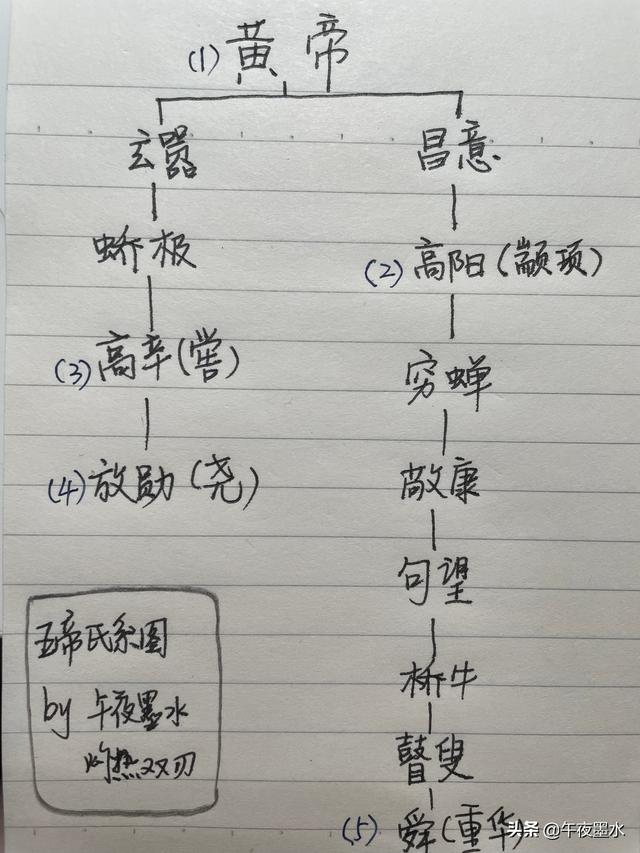 (1) 黄帝
玄嚣 昌意
蛴极 (2) 高阳(颛顼)
(3) 高辛(喾) 穷蝉
(4) 放勋(尧) 敞康
句望
桥牛
瞽叟
(5) 舜(重华)
五帝氏系图
by 午夜墨水
灼热双刃
头条 @午夜墨水